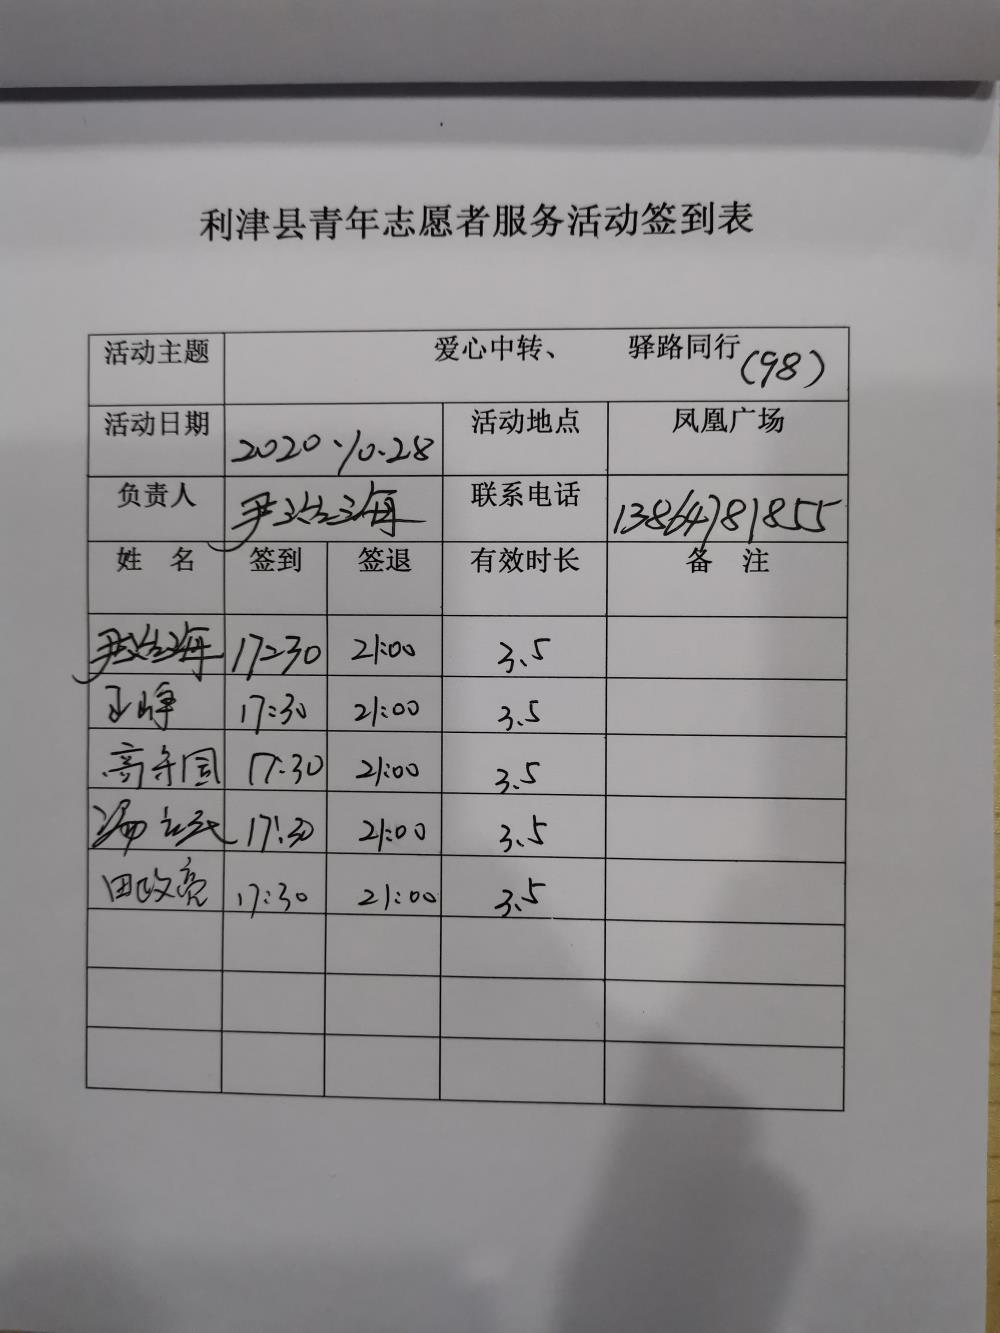 利津县青年志愿者服务活动签到表
活动主题 爱心中转、 驿路同行(98)
活动日期 2020.10.28 活动地点 凤凰广场
负责人 尹 海 联系电话 13864781855
姓 名 签到 签退 有效时长 备 注
尹 海 17:30 21:00 3.5
王峥 17:30 21:00 3.5
高守国 17:30 21:00 3.5
17:30 21:00 3.5
田政亮 17:30 21:00 3.5